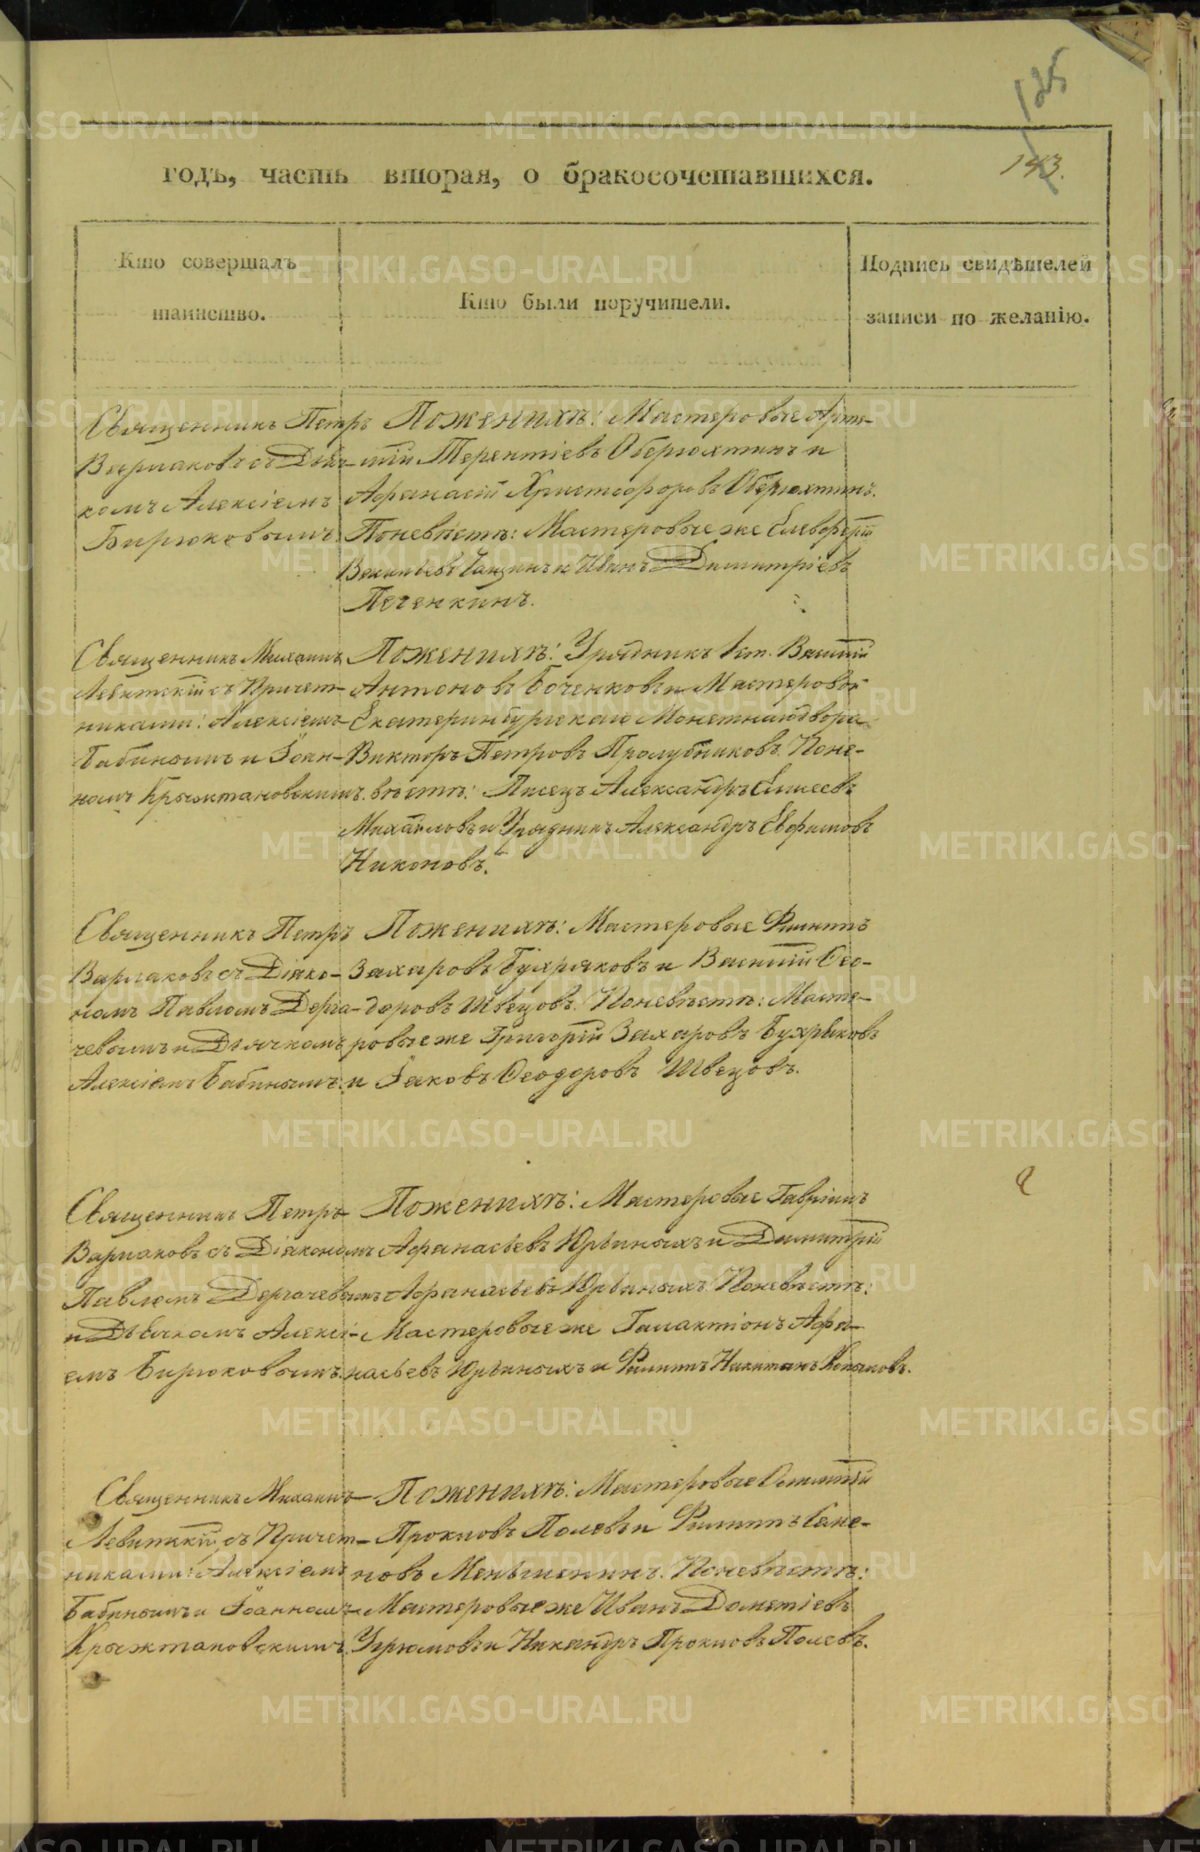 135
143.
годъ, часть вторая, о бракосочетавшихся.
Кто совершалъ таинство.
Кто были поручители.
Подпись свидѣтелей записи по желанію.
Священникъ Петръ
Варлаковъ съ Дья-
комъ Алексіемъ
Бирюковымъ
По женихѣ: Мастеровые Арте-
мій Терентіевъ Оберюхтинъ и
Афанасій Христофоровъ Оберюхтинъ.
По невѣстѣ: Мастеровые же Елевферій
Ванинъ и Иванъ Димитріевъ
Печенкинъ.
Священникъ Михаилъ
Левитскій съ Причет-
никами: Алексіемъ
Бабинымъ и Іоан-
номъ Крыжтановскимъ.
По женихѣ: Урядникъ Василій
Антоновъ Боченковъ и Мастеровой
Екатеринбургскаго Монетнаго двора
Викторъ Петровъ Пролубниковъ. По не-
вѣстѣ: Писецъ Александръ Елисеевъ
Михайловъ и Урядникъ Александръ Евфимовъ
Никоновъ.
Священникъ Петръ
Варлаковъ съ Діако-
номъ Павломъ Дерга-
чевымъ и Дьячкомъ
Алексіемъ Бабинымъ.
По женихѣ: Мастеровые Филиппъ
Захаровъ Бухряковъ и Василій Ѳео-
доровъ Швецовъ. По невѣстѣ: Масте-
ровые же Григорій Захаровъ Бухряковъ
и Іаковъ Ѳеодоровъ Швецовъ.
Священникъ Петръ
Варлаковъ съ Діакономъ
Павломъ Дергачевымъ
и Дьячкомъ Алексі-
емъ Бирюковымъ.
По женихѣ: Мастеровые Гавріилъ
Афанасьевъ Юрьиныхъ и Димитрій
Афанасьевъ Юрьиныхъ. По невѣстѣ:
Мастеровые же Галактіонъ Афа-
насьевъ Юрьиныхъ и Филиппъ Никитинъ Копыловъ.
Священникъ Михаилъ
Левитскій съ Причет-
никами: Алексіемъ
Бабинымъ и Іоанномъ
Крыжтановскимъ.
По женихѣ: Мастеровые
Прокловъ Полевъ и Филиппъ Семе-
новъ Меньшенинъ. По невѣстѣ:
Мастеровые же Иванъ Дометіевъ
Угрюмовъ и Никандръ Прокловъ Полевъ.
METRIKI.GASO-URAL.RU